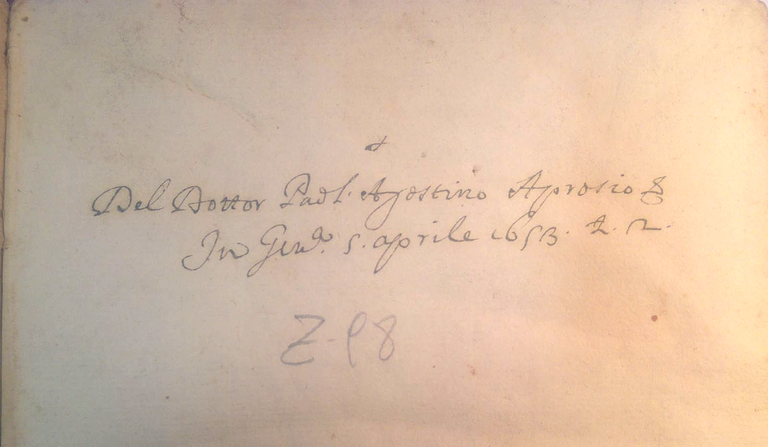 Del Dottor Paol. Agostino Aprosio
In Gen.ª 5. aprile 1653. L. 2.
Z-98